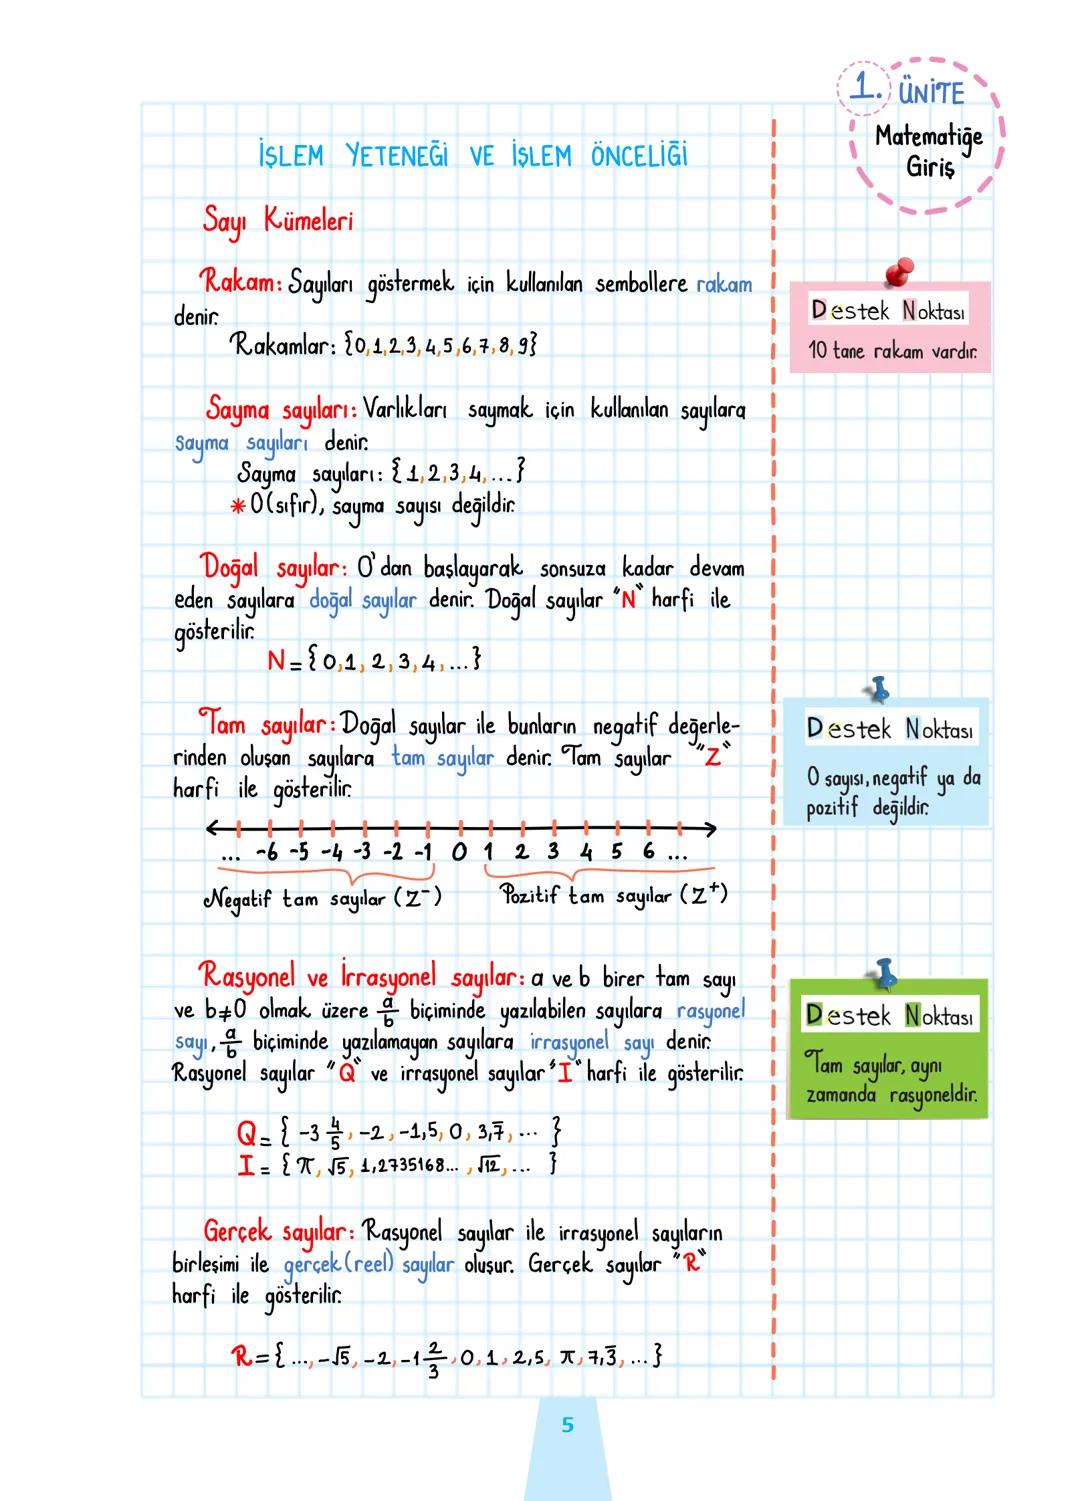 1. ÜNİTE
Matematiğe
Giriş
İŞLEM YETENEĞİ VE İŞLEM ÖNCELİĞİ
Sayı Kümeleri
Rakam: Sayıları göstermek için kullanılan sembollere rakam
denir.
Rakamlar: {0,1,2,3,4,5,6,7,8,9}
Destek Noktası
10 tane rakam vardır.
Sayma sayıları: Varlıkları saymak için kullanılan sayılara
sayma sayıları denir.
Sayma sayıları: {1,2,3,4,...}
*0(sıfır), sayma sayısı değildir.
Doğal sayılar: 0'dan başlayarak sonsuza kadar devam
eden sayılara doğal sayılar denir. Doğal sayılar "N" harfi ile
gösterilir.
N={0,1,2,3,4,...}
Tam sayılar: Doğal sayılar ile bunların negatif değerle-
rinden oluşan sayılara tam sayılar denir. Tam sayılar "Z"
harfi ile gösterilir.
Destek Noktası
0 sayısı, negatif ya da
pozitif değildir.
... -6 -5 -4 -3 -2 -1 0 1 2 3 4 5 6 ...
Negatif tam sayılar (Z⁻) Pozitif tam sayılar (Z⁺)
Rasyonel ve İrrasyonel sayılar: a ve b birer tam sayı
ve b≠0 olmak üzere a/b biçiminde yazılabilen sayılara rasyonel
sayı, a/b biçiminde yazılamayan sayılara irrasyonel sayı denir.
Rasyonel sayılar "Q" ve irrasyonel sayılar "I" harfi ile gösterilir.
Destek Noktası
Tam sayılar, aynı
zamanda rasyoneldir.
Q={-3 4/5, -2, -1,5, 0, 3,7̅, ...}
I={π, √5, 1,2735168..., √12, ...}
Gerçek sayılar: Rasyonel sayılar ile irrasyonel sayıların
birleşimi ile gerçek (reel) sayılar oluşur. Gerçek sayılar "R"
harfi ile gösterilir.
R={..., -√5, -2, -1 2/3, 0, 1, 2,5, π, 7,3̅, ...}
5